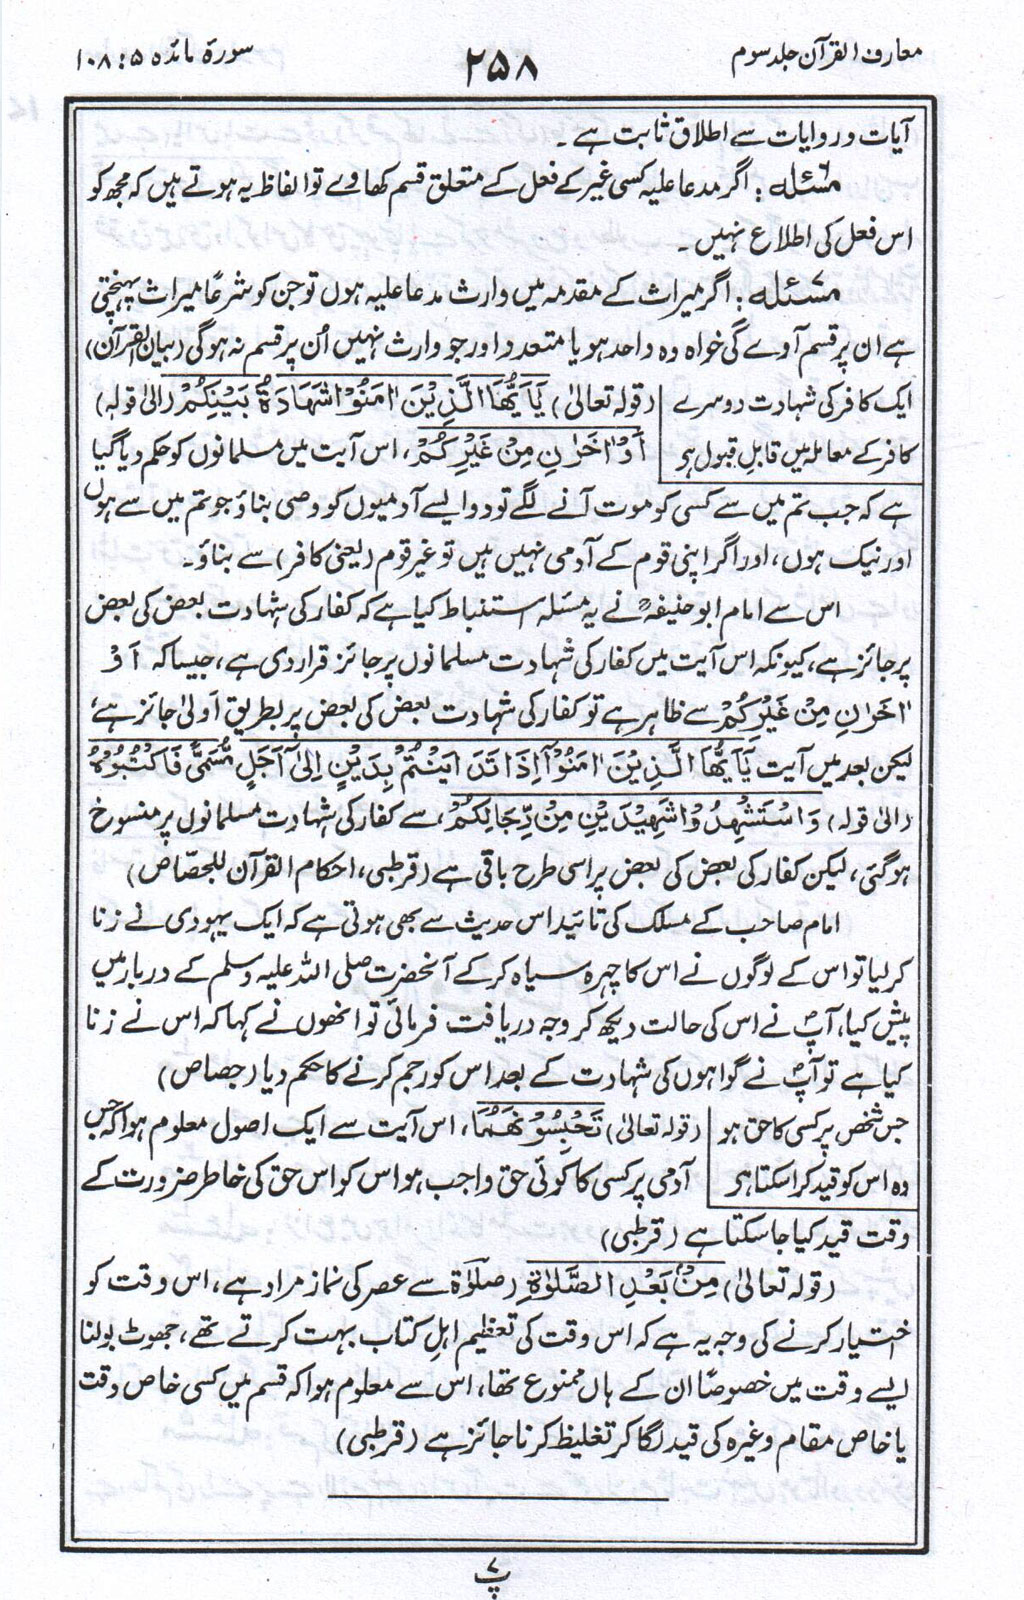 معارف القرآن جلد سوم
۲۵۸
سورۃ مائدہ ۵ : ۱۰۸
آیات و روایات سے اطلاق ثابت ہے۔
مسئلہ : اگر مدعا علیہ کسی غیر کے فعل کے متعلق قسم کھاوے تو الفاظ یہ ہوتے ہیں کہ مجھ کو
اس فعل کی اطلاع نہیں۔
مسئلہ : اگر میراث کے مقدمہ میں وارث مدعا علیہ ہوں تو جن کو شرعاً میراث پہنچتی
ہے ان پر قسم آوے گی خواہ وہ واحد ہو یا متعدد اور جو وارث نہیں اُن پر قسم نہ ہوگی (بیان القرآن)
ایک کافر کی شہادت دوسرے
کافر کے معاملہ میں قابلِ قبول ہر
(قولہ تعالیٰ) يٰٓاَيُّهَا الَّذِيْنَ اٰمَنُوْا شَهَادَةُ بَيْنِكُمْ (الیٰ قولہ)
اَوْ اٰخَرٰنِ مِنْ غَيْرِكُمْ، اس آیت میں مسلمانوں کو حکم دیا گیا
ہے کہ جب تم میں سے کسی کو موت آنے لگے تو دو ایسے آدمیوں کو وصی بناؤ جو تم میں سے ہوں
اور نیک ہوں، اور اگر اپنی قوم کے آدمی نہیں ہیں تو غیر قوم (یعنی کافر) سے بناؤ۔
اس سے امام ابو حنیفہؒ نے یہ مسئلہ استنباط کیا ہے کہ کفار کی شہادت بعض کی بعض
پر جائز ہے، کیونکہ اس آیت میں کفار کی شہادت مسلمانوں پر جائز قرار دی ہے، جیسا کہ اَوْ
اٰخَرٰنِ مِنْ غَيْرِكُمْ سے ظاہر ہے تو کفار کی شہادت بعض کی بعض پر بطریقِ اَولیٰ جائز ہے،
لیکن بعد میں آیت يٰٓاَيُّهَا الَّذِيْنَ اٰمَنُوْٓا اِذَا تَدَايَنْتُمْ بِدَيْنٍ اِلٰٓى اَجَلٍ مُّسَمًّى فَاكْتُبُوْهُ
(الیٰ قولہ) وَاسْتَشْهِدُوْا شَهِيْدَيْنِ مِنْ رِّجَالِكُمْ، سے کفار کی شہادت مسلمانوں پر منسوخ
ہو گئی، لیکن کفار کی بعض کی بعض پر اسی طرح باقی ہے (قرطبی، احکام القرآن للجصّاص)
امام صاحب کے مسلک کی تائید اس حدیث سے بھی ہوتی ہے کہ ایک یہودی نے زنا
کر لیا تو اس کے لوگوں نے اس کا چہرہ سیاہ کر کے آنحضرت صلی اللہ علیہ وسلم کے دربار میں
پیش کیا، آپؐ نے اس کی حالت دیکھ کر وجہ دریافت فرمائی تو انھوں نے کہا کہ اس نے زنا
کیا ہے تو آپؐ نے گواہوں کی شہادت کے بعد اس کو رجم کرنے کا حکم دیا (جصاص)
جس شخص پر کسی کا حق ہو
وہ اس کو قید کرا سکتا ہر
(قولہ تعالیٰ) تَحْبِسُوْنَهُمَا، اس آیت سے ایک اصول معلوم ہوا کہ جس
آدمی پر کسی کا کوئی حق واجب ہو اس کو اس حق کی خاطر ضرورت کے
وقت قید کیا جا سکتا ہے (قرطبی)
(قولہ تعالیٰ) مِنْۢ بَعْدِ الصَّلٰوةِ (صلوٰۃ سے عصر کی نماز مراد ہے، اس وقت کو
اختیار کرنے کی وجہ یہ ہے کہ اس وقت کی تعظیم اہلِ کتاب بہت کرتے تھے، جھوٹ بولنا
ایسے وقت میں خصوصاً ان کے ہاں ممنوع تھا، اس سے معلوم ہوا کہ قسم میں کسی خاص وقت
یا خاص مقام وغیرہ کی قید لگا کر تغلیظ کرنا جائز ہے (قرطبی)
پ ۷